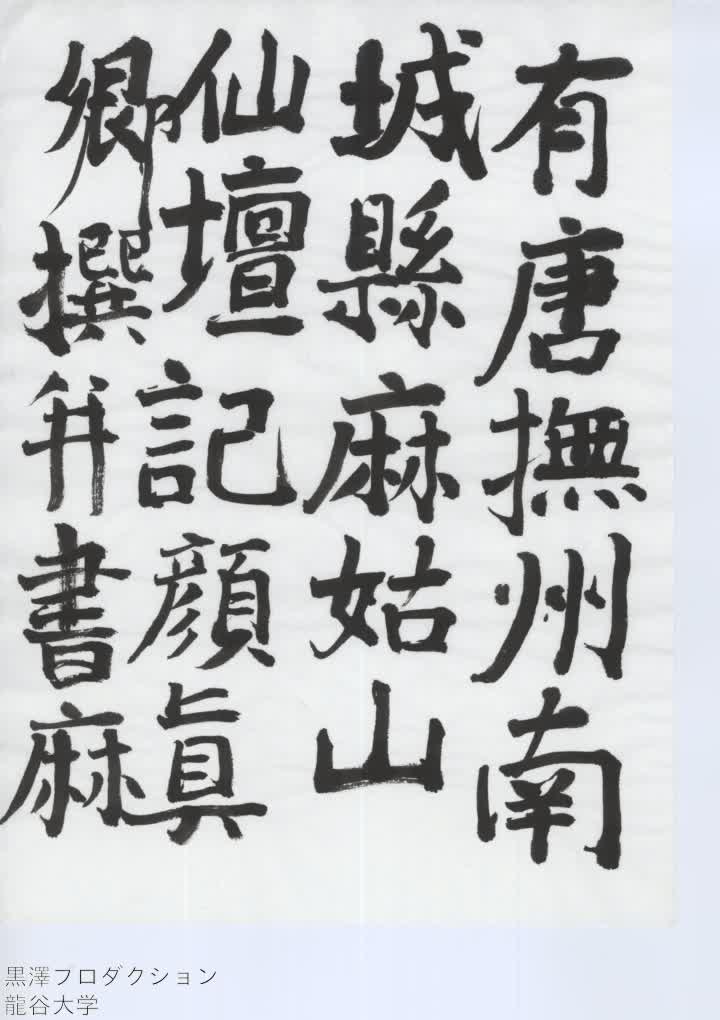 有唐撫州南
城縣麻姑山
仙壇記顔眞
卿撰并書麻
黒澤プロダクション
龍谷大学